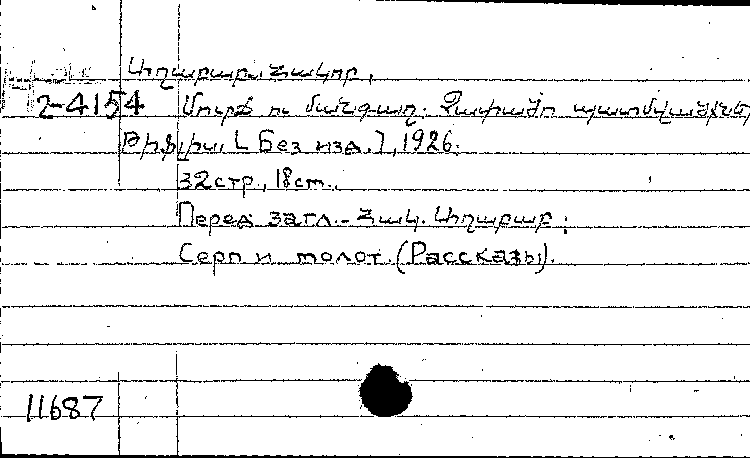 Աղբարար Հակոբ.
2-4154 Մուրճ ու մանգաղ. Չափածո պատմվածքներ
Թիֆլիս, [Без изд.], 1926.
32 стр., 18 ст.,
Перед загл. - Հակ. Աղբարար;
Серп и молот. (Рассказы).
11687